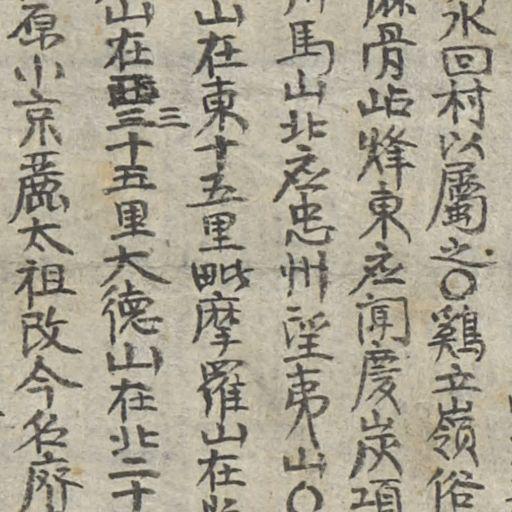 水回村以屬之〇鷄立嶺俗
麻骨岾烽東应聞慶炭項
馬山北应忠州望夷山〇
山在東十五里毗摩羅山在
山在西三十五里大德山在北二十
原小京麗太祖改今名府